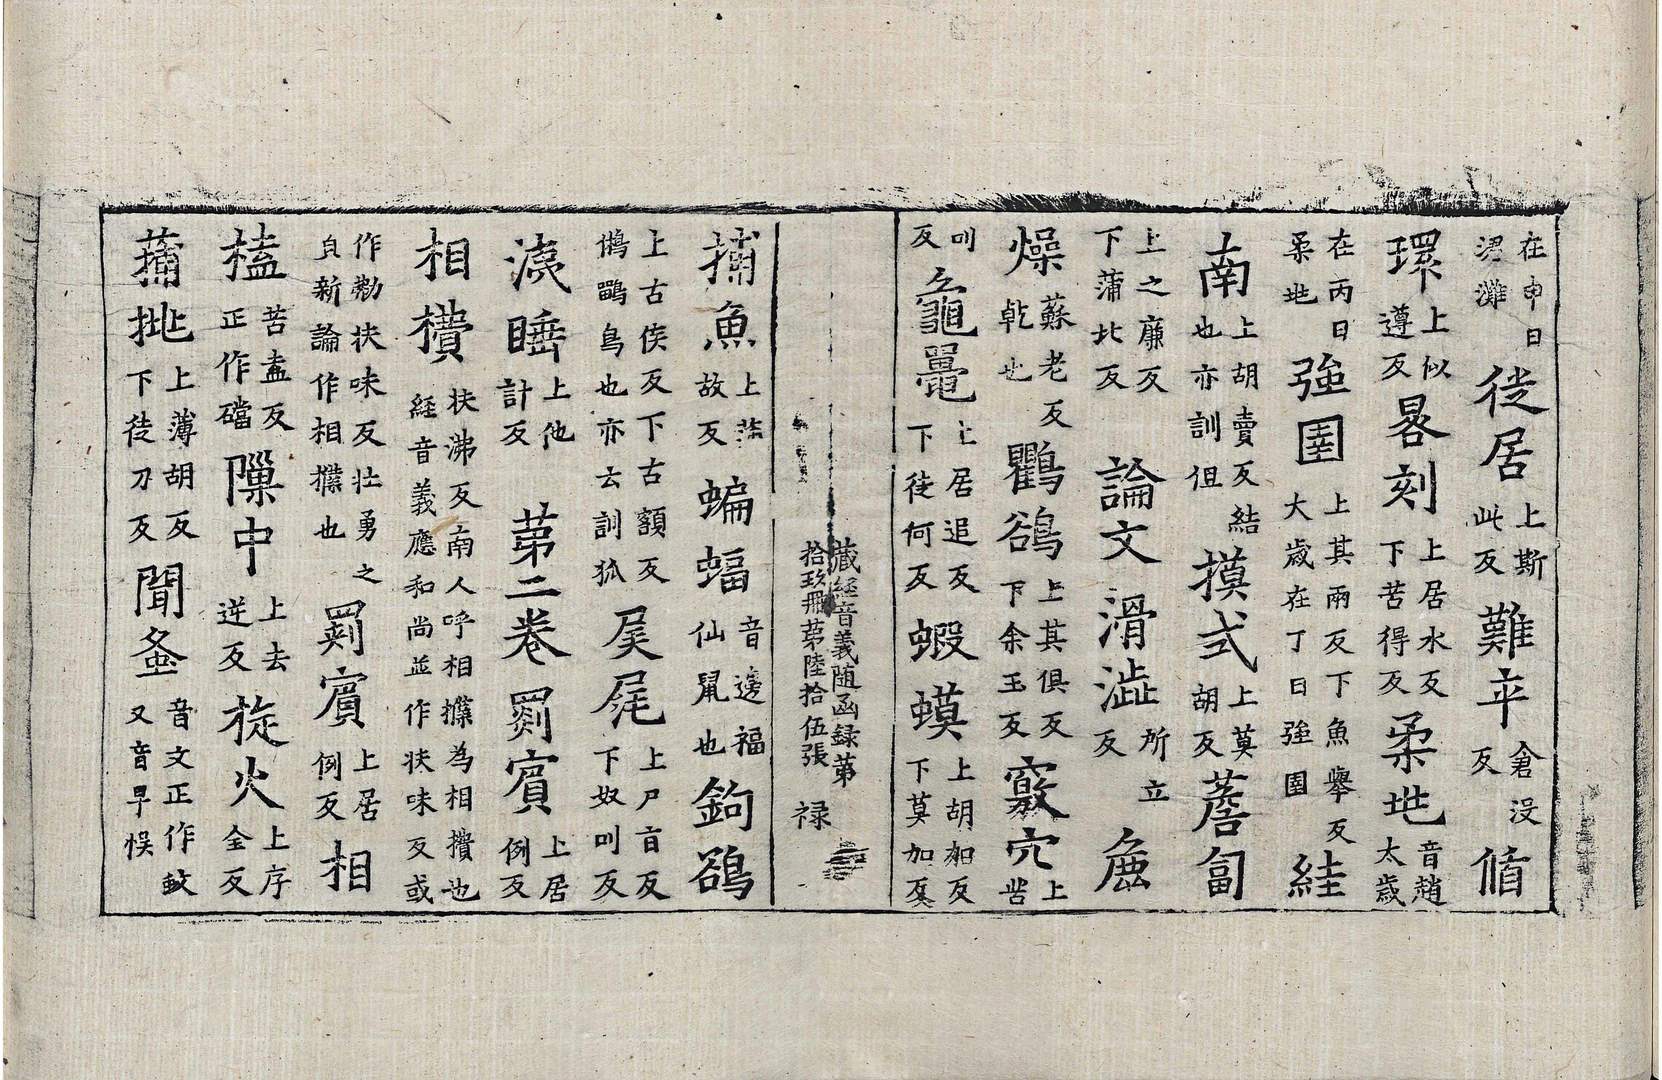 在申日涒灘徒居上斯此反難卒倉没反循
環上似遵反晷刻上居水反下苦得反柔兆音趙太歲
在丙日柔兆強圉上其兩反下魚舉反大歲在丁日強圉絓
南上胡賣反結也亦訓但摸式上莫胡反薝蔔
上之廉反下蒲北反論文滑澁所立反麁
燥蘇老反乾也鸜鵒上其俱反下余玉反竅穴上苦
叫反龜鼉上居追反下徒何反蝦蟆上胡加反下莫加反
藏經音義随函録苐拾玖冊苐陸拾伍張 禄
捕魚上蒲故反蝙蝠音邊福仙鼠也鉤鵒
上古侯反下古額反鵂鶹鳥也亦云訓狐屎尿上尸旨反下奴叫反
洟唾上他計反苐二卷罽賔上居例反
相攢扶沸反南人呼相攥為相攢也経音義應和尚並作扶味反或
作勷扶味反壮勇之皃新論作相攥也罽賔上居例反相
榼苦盍反正作礚隟中上去逆反旋火上序全反
蒱桃上薄胡反下徒刀反聞蚉音文正作蚊又音早悞